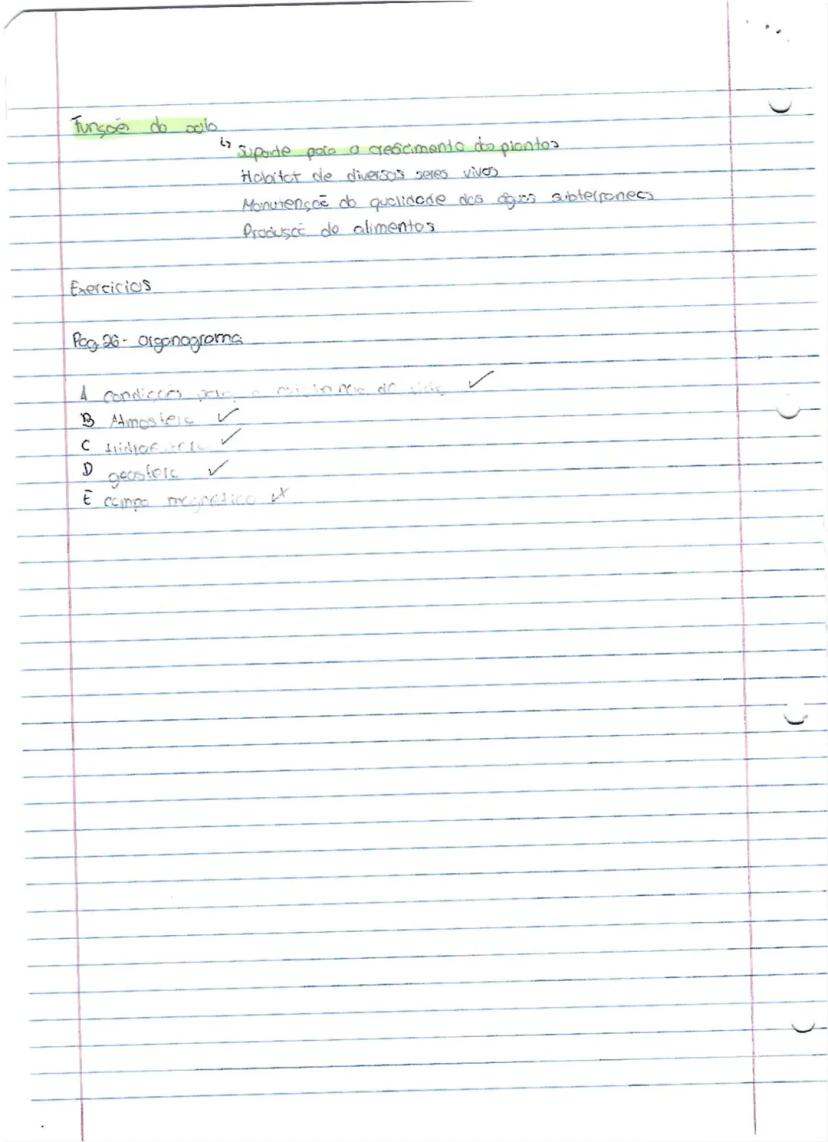 Funções do solo
↳ Suporte para o crescimento do plantas
Habitat de diversos seres vivos
Manutenção do qualidade das águas subterraneas
Produção de alimentos
Exercicios
Pag 26 - organograma
A condições para a existencia de vida ✓
B Atmosfera ✓
C Hidrosfera ✓
D geosfera ✓
E campo magnético